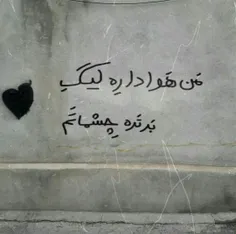 مَن هَوادارِه لیگِ
بَرتَره چِشماتَم